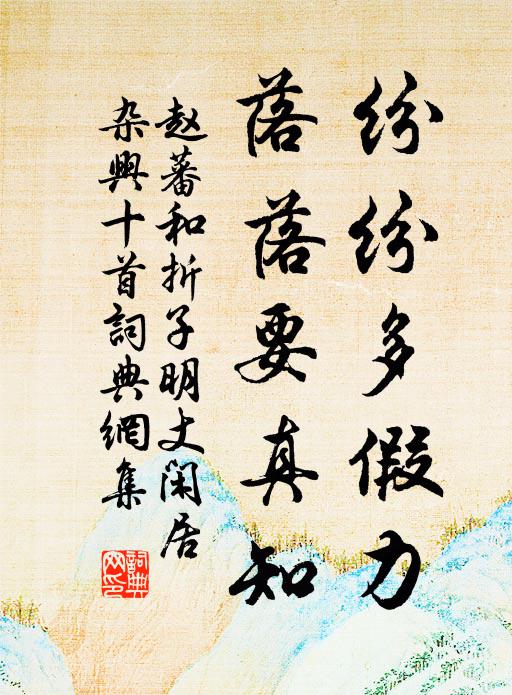 纷纷多假力
落落要真知
赵蕃和折子明丈闲居
杂興十首詞典網集
詞典网印